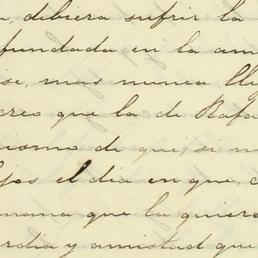 , debiera sufrir la
fundada en la am
se, mas nunca lle
creo que la de Rafa
nismo de que, si m
jos el dia en que, c
mana que la quiero
rdia y amistad que